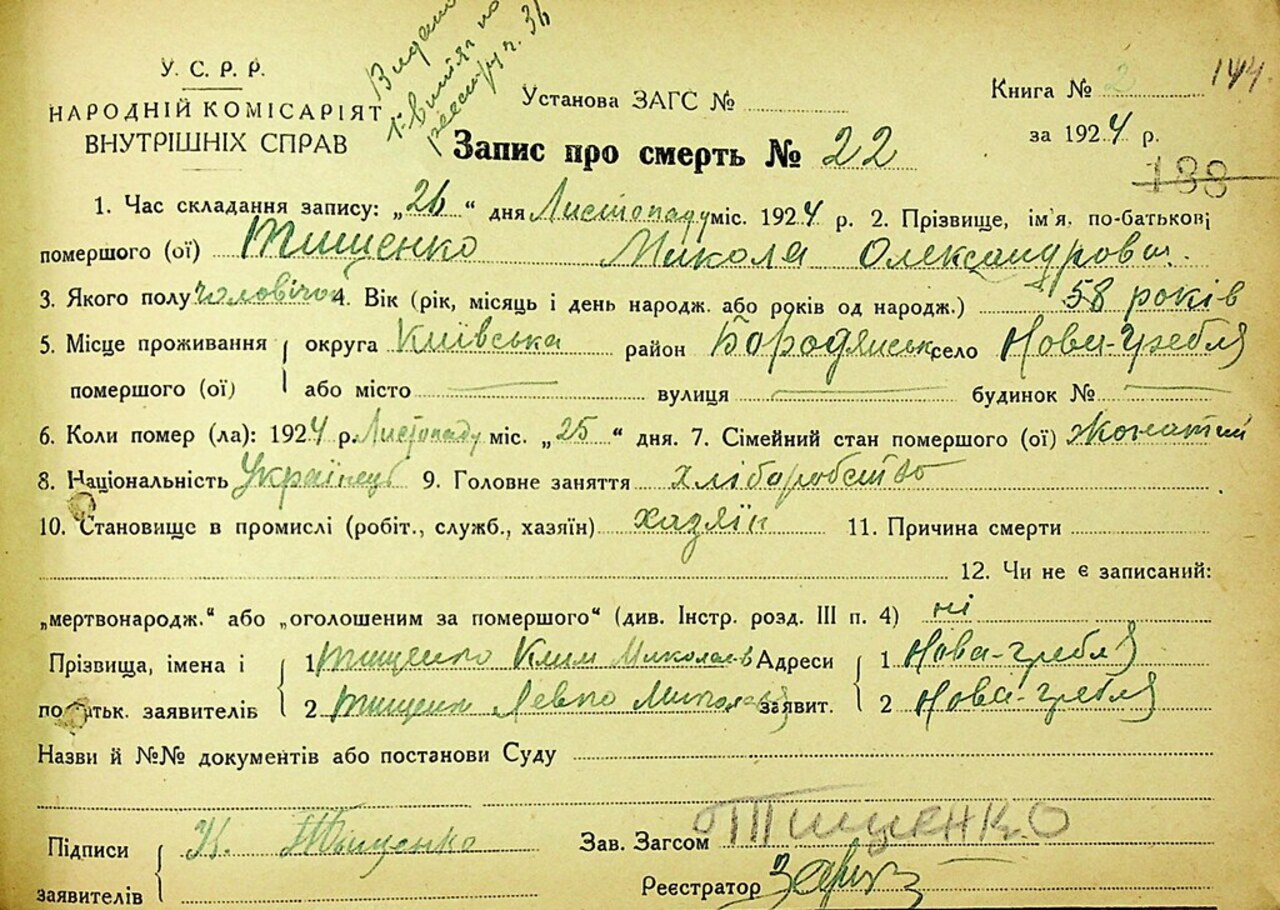 Видано
витяг по
реєстру ч. 36
У. С. Р. Р.
НАРОДНІЙ КОМІСАРІЯТ
ВНУТРІШНІХ СПРАВ
Установа ЗАГС №
Книга № 2 144
за 1924 р.
188
Запис про смерть № 22
1. Час складання запису: „26“ дня Листопаду міс. 1924 р. 2. Прізвище, ім'я, по-батькові
помершого (ої) Тищенко Микола Олександрович.
3. Якого полу чоловічо 4. Вік (рік, місяць і день народж. або років од народж.) 58 років
5. Місце проживання помершого (ої) округа Київська район Бородянськ село Нова-Гребля
або місто вулиця будинок №
6. Коли помер (ла): 1924 р. Листопаду міс. „25“ дня. 7. Сімейний стан помершого (ої) жонатий
8. Національність Українець 9. Головне заняття хліборобство
10. Становище в промислі (робіт., служб., хазяїн) хазяїн 11. Причина смерти
12. Чи не є записаний:
„мертвонародж.“ або „оголошеним за помершого“ (див. Інстр. розд. III п. 4) ні
Прізвища, імена і 1 Тищенко Клим Миколаєв Адреси 1 Нова-Гребля
по-батьк. заявителів 2 Тищенко Левко заявит. 2 Нова-Гребля
Назви й №№ документів або постанови Суду
Підписи заявителів К. Тищенко
Зав. Загсом Тищенко
Реєстратор